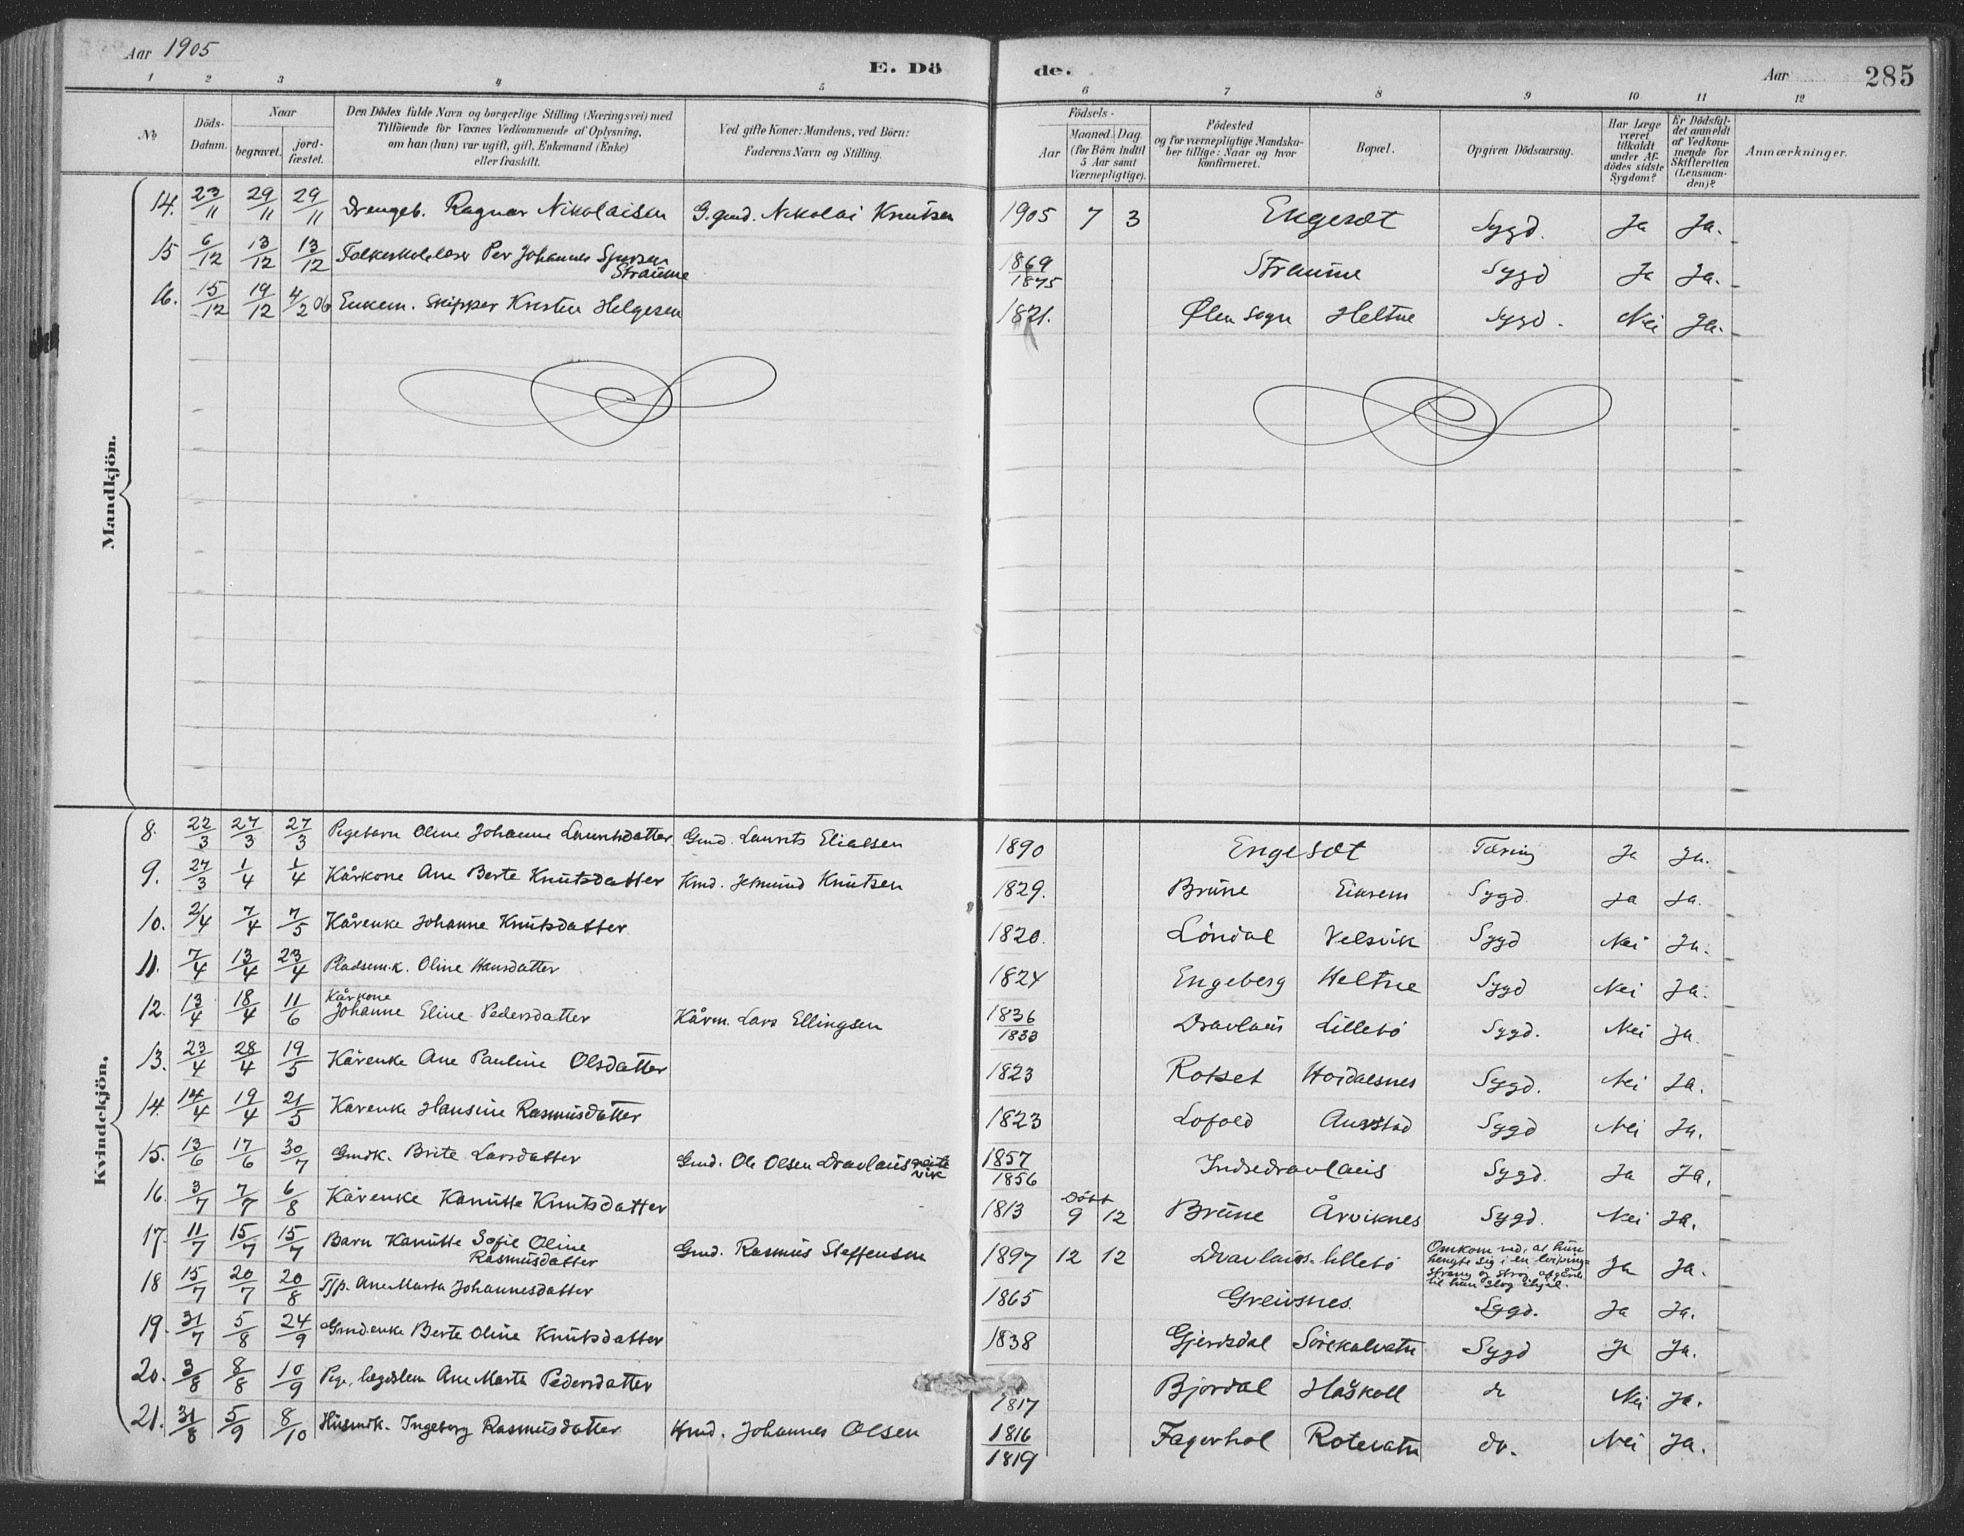 Aar 1905
E. Dö de.
Aar
285
1 2 3 4 5 6 7 8 9 10 11 12
No
Döds-Datum.
Naar
begravet.
jord-fæstet.
Den Dödes fulde Navn og borgerlige Stilling (Næringsvei) med
Tilföiende for Voxnes Vedkommende af Oplysning,
om han (hun) var ugift, gift, Enkemand (Enke)
eller fraskilt.
Ved gifte Koner: Mandens, ved Börn:
Faderens Navn og Stilling.
Födsels-
Aar
Maaned. Dag.
(for Börn indtil
5 Aar samt
Værnepligtige).
Födested
og for værnepligtige Mandska-
ber tillige: Naar og hvor
konfirmeret.
Bopæl.
Opgiven Dödsaarsag.
Har Læge
været
tilkaldt
under Af-
dödes sidste
Sygdom?
Er Dödsfal-
det anmeldt
af Vedkom-
mende for
Skifteretten
(Lensman-
den)?
Anmærkninger.
Mandkjön.
14. 23/11 29/11 29/11 Drengeb. Ragnar Nikolaisen G.gmd. Nikolai Knutsen 1905 7 3 Engeset Sygd. Ja Ja.
15 6/12 13/12 13/12 Folkeskolelærer Per Johannes Sjursen
Straume 1869/1875 Straume Sygd Ja Ja.
16. 15/12 19/12 4/2 06 Enkem. Skipper Kristen Helgesen 1821. Ølen Sogn Heltne Sygd. Nei Ja.
Kvindekjön.
8. 22/3 27/3 27/3 Pigebarn Oline Johanne Lauritsdatter Gmd. Laurits Eliassen 1890 Engeset Tæring Ja Ja.
9. 27/3 1/4 1/4 Kårkone Ane Berte Knutsdatter Kmd. Jetmund Knutsen 1829. Brune Eiksem Sygd. Ja Ja.
10. 2/4 7/4 7/5 Kårenke Johanne Knutsdatter 1820. Löndal Velsvik Sygd Nei Ja.
11. 7/4 13/4 23/4 Pladsem.k. Oline Hansdatter 1824 Engeberg Heltne Sygd Nei Ja.
12. 13/4 18/4 11/6 Kårkone
Johanne Eline Pedersdatter Kårm. Lars Ellingsen 1836/1833 Dravlaus Lillebö Sygd. Nei Ja.
13. 23/4 28/4 19/5 Kårenke Ane Pauline Olsdatter 1823 Rotset Hoidalsnes Sygd. Nei Ja.
14. 14/4 19/4 21/5 Kårenke Hansine Rasmusdatter 1823 Lofold Aurstad Sygd Nei Ja.
15. 13/6 17/6 30/7 Gmdk. Brite Larsdatter Gmd. Ole Olsen Dravlausvik 1857/1856 Indredravlaus Sygd. Ja Ja.
16. 3/7 7/7 6/8 Kårenke Kanutte Knutsdatter 1813 Döbt 9 12 Brune Årviknes Sygd. Nei Ja.
17. 11/7 15/7 15/7 Barn Kanutte Sofie Oline
Rasmusdatter Gmd. Rasmus Steffensen 1897 12 12 Dravlaus- Lillebö Omkom ved, at hun
hengte sig i en
til hun slog ihjel. Ja Ja.
18 15/7 20/7 20/8 Tjp. Ane Marta Johannesdatter 1865 Greivsnes. Sygd. Ja Ja.
19. 31/7 5/8 24/9 Gmdenke Berte Oline Knutsdatter 1838 Gjerdsdal Sörekalvatn Sygd Ja Ja.
20. 3/8 8/8 10/9 Pige, lægdslem Ane Marta Pedersdatter 1817 Bjordal Haskoll do Nei Ja.
21. 31/8 5/9 8/10 Husmdk. Ingeborg Rasmusdatter Hmd. Johannes Olsen 1816/1819 Fagerhol Rotevatn do. Nei Ja.